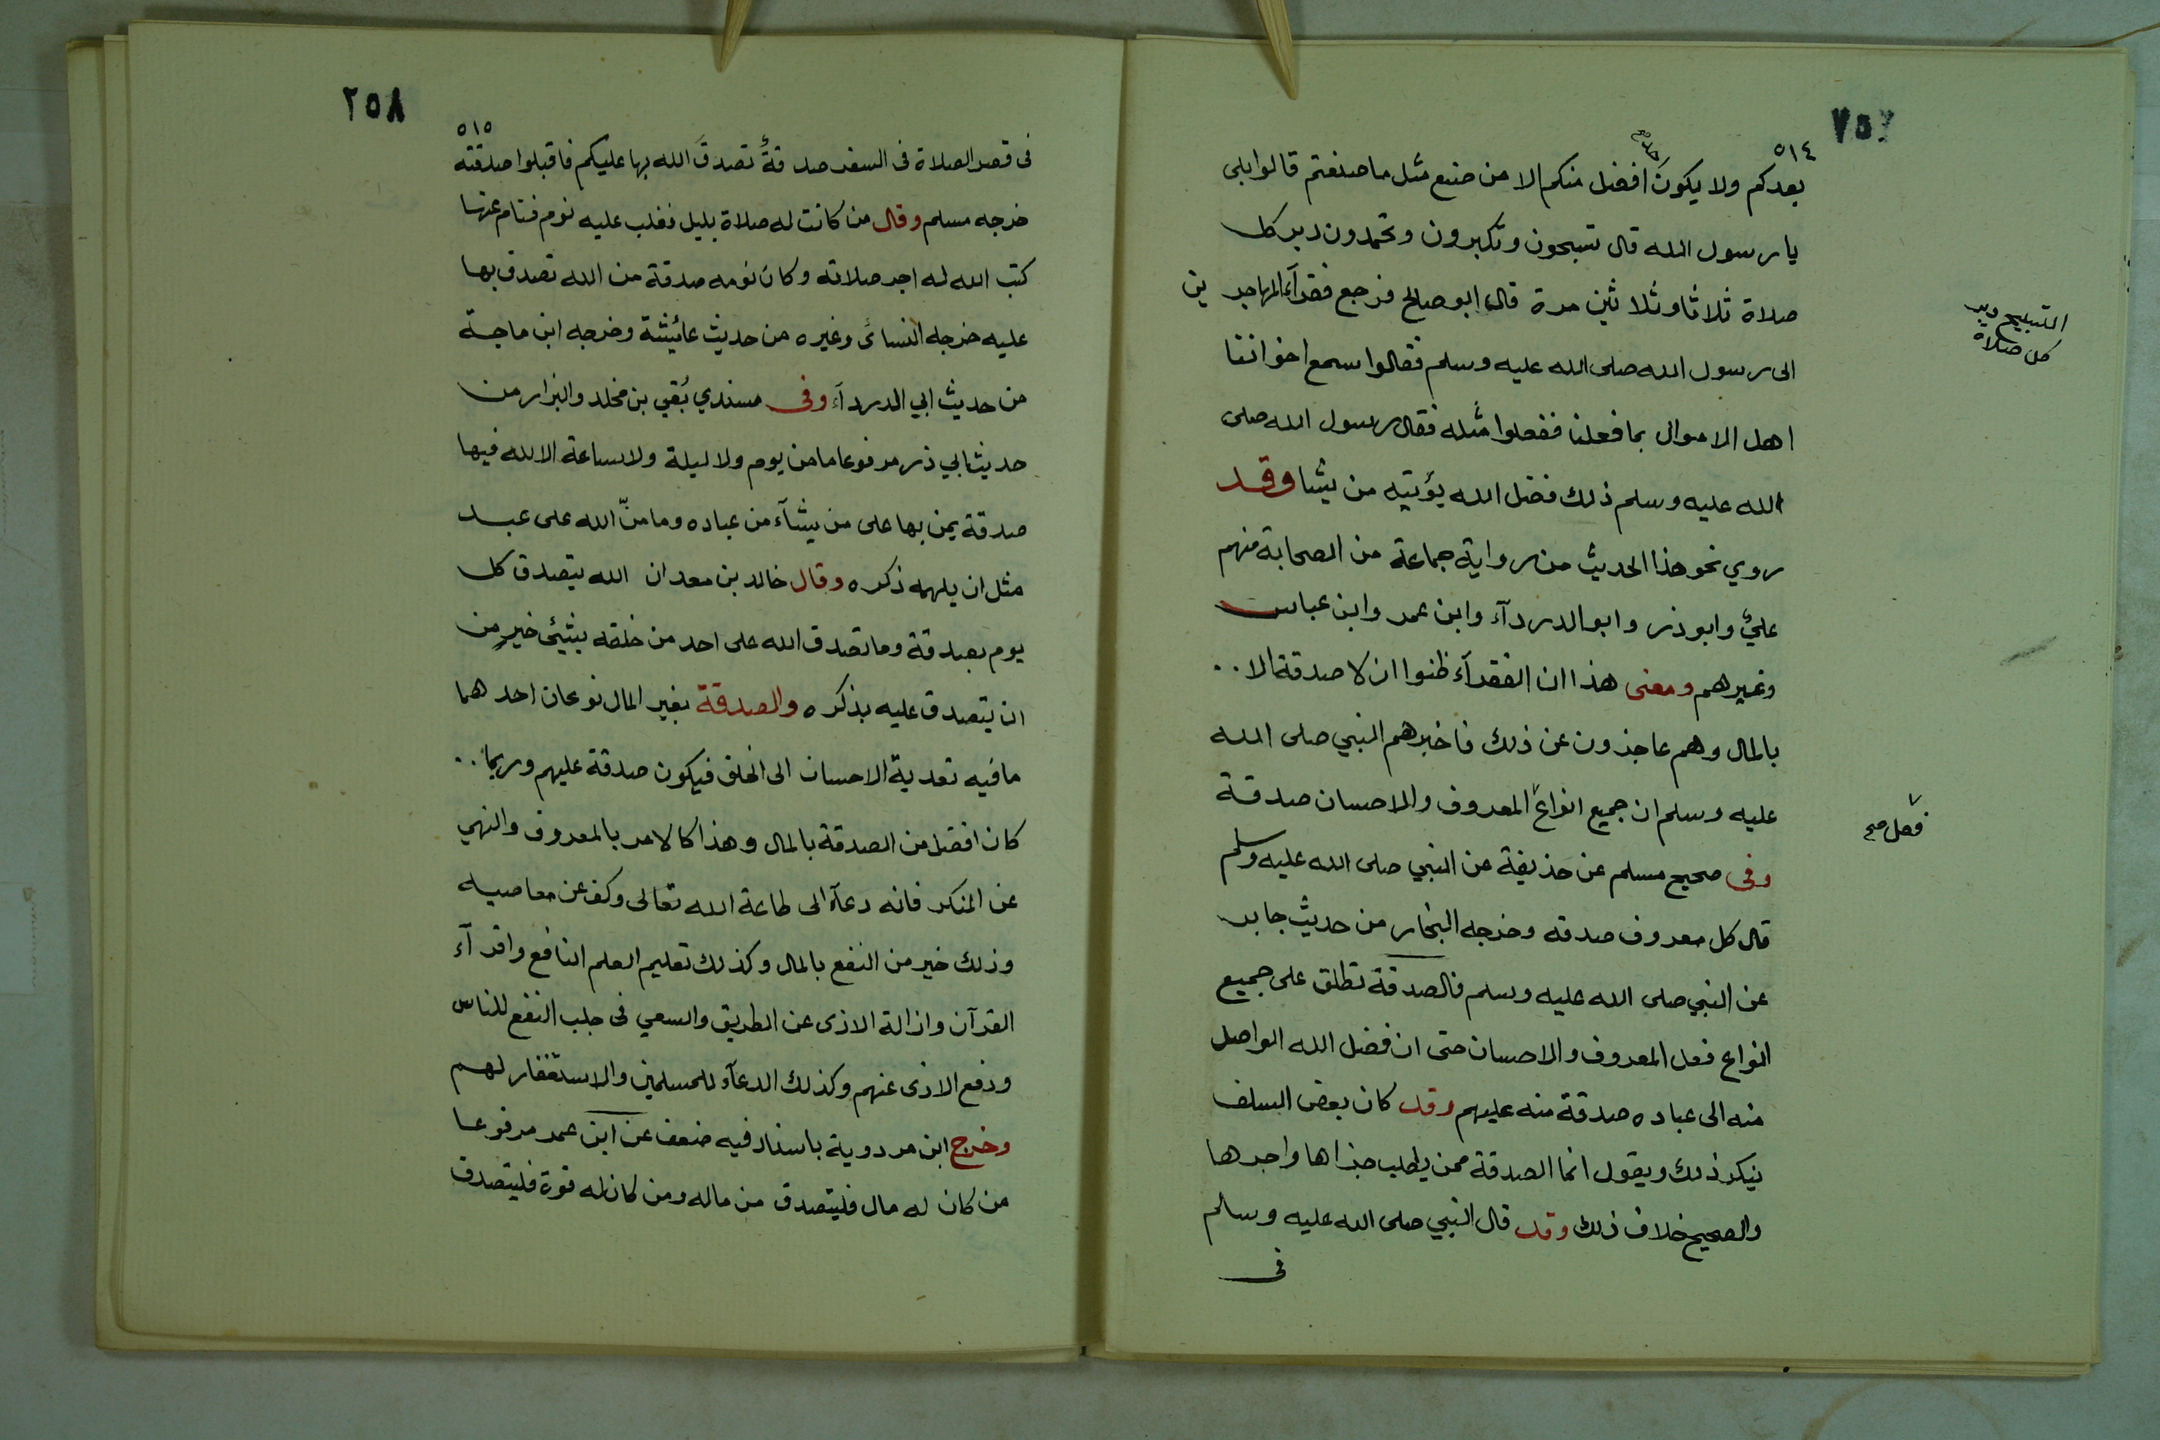 ٧٥٢
٥١٤
بعدكم ولا يكون احد افضل منكم الا من صنع مثل ما صنعتم قالوا بلى
يا رسول الله قال تسبحون وتكبرون وتحمدون دبر كل
صلاة ثلاثا وثلاثين مرة قال ابو صالح فرجع فقرآء المهاجرين
الى رسول الله صلى الله عليه وسلم فقالوا سمع اخواننا
اهل الاموال بما فعلنا ففعلوا مثله فقال رسول الله صلى
الله عليه وسلم ذلك فضل الله يؤتيه من يشا وقد
روي نحو هذا الحديث من رواية جماعة من الصحابة منهم
عليٌ وابو ذر وابو الدردآء وابن عمر وابن عباس
وغيرهم ومعنى هذا ان الفقرآء ظنوا ان لا صدقة الا . .
بالمال وهم عاجزون عن ذلك فاخبرهم النبي صلى الله
عليه وسلم ان جميع انواع المعروف والاحسان صدقة
وفى صحيح مسلم عن حذيفة عن النبي صلى الله عليه وسلم
قال كل معروف صدقه وخرجه البخار من حديث جابر
عن النبي صلى الله عليه وسلم فالصدقة تطلق على جميع
انواع فعل المعروف والاحسان حتى ان فضل الله الواصل
منه الى عباده صدقة منه عليهم وقد كان بعض السلف
ينكر ذلك ويقول انما الصدقة ممن يطلب جزاها واجرها
والصحيح خلاف ذلك وقد قال النبي صلى الله عليه وسلم
فى
التسبيح دبر
كل صلاة
فعل صح
٢٥٨
٥١٥
فى قصر الصلاة فى السفر صدقةٌ تصدقَ الله بها عليكم فاقبلوا صدقته
خرجه مسلم وقال من كانت له صلاة بليل فغلب عليه نوم فنام عنها
كتب الله له اجر صلاته وكان نومه صدقة من الله تصدق بها
عليه خرجه النسائ وغيره من حديث عائيشة وخرجه ابن ماجة
من حديث ابي الدردآء وفى مسندي بُقي بن مخلد والبزار من
حديث ابي ذر مرفوعا ما من يوم ولا ليلة ولا ساعة الا لله فيها
صدقة يمن بها على من يشآء من عباده وما منّ الله على عبد
مثل ان يلهمه ذكره وقال خالد بن معدان الله يتصدق كل
يوم بصدقة وما تصدق الله على احد من خلقه بشيئ خير من
ان يتصدق عليه بذكره والصدقة بغير المال نوعان احدهما
ما فيه تعدية الاحسان الى الخلق فيكون صدقة عليهم وربما . .
كان افضل من الصدقة بالمال وهذا كالامر بالمعروف والنهي
عن المنكر فانه دعآء الى طاعة الله تعالى وكف عن معاصيه
وذلك خير من النفع بالمال وكذلك تعليم العلم النافع واقرآء
القرآن وازالة الاذى عن الطريق والسعي فى جلب النفع للناس
ودفع الاذى عنهم وكذلك الدعآء للمسلمين والاستغفار لهم
وخرج ابن مردوية باسناد فيه ضعف عن ابن عمر مرفوعا
من كان له مال فليتصدق من ماله ومن كان له قوة فليتصدق